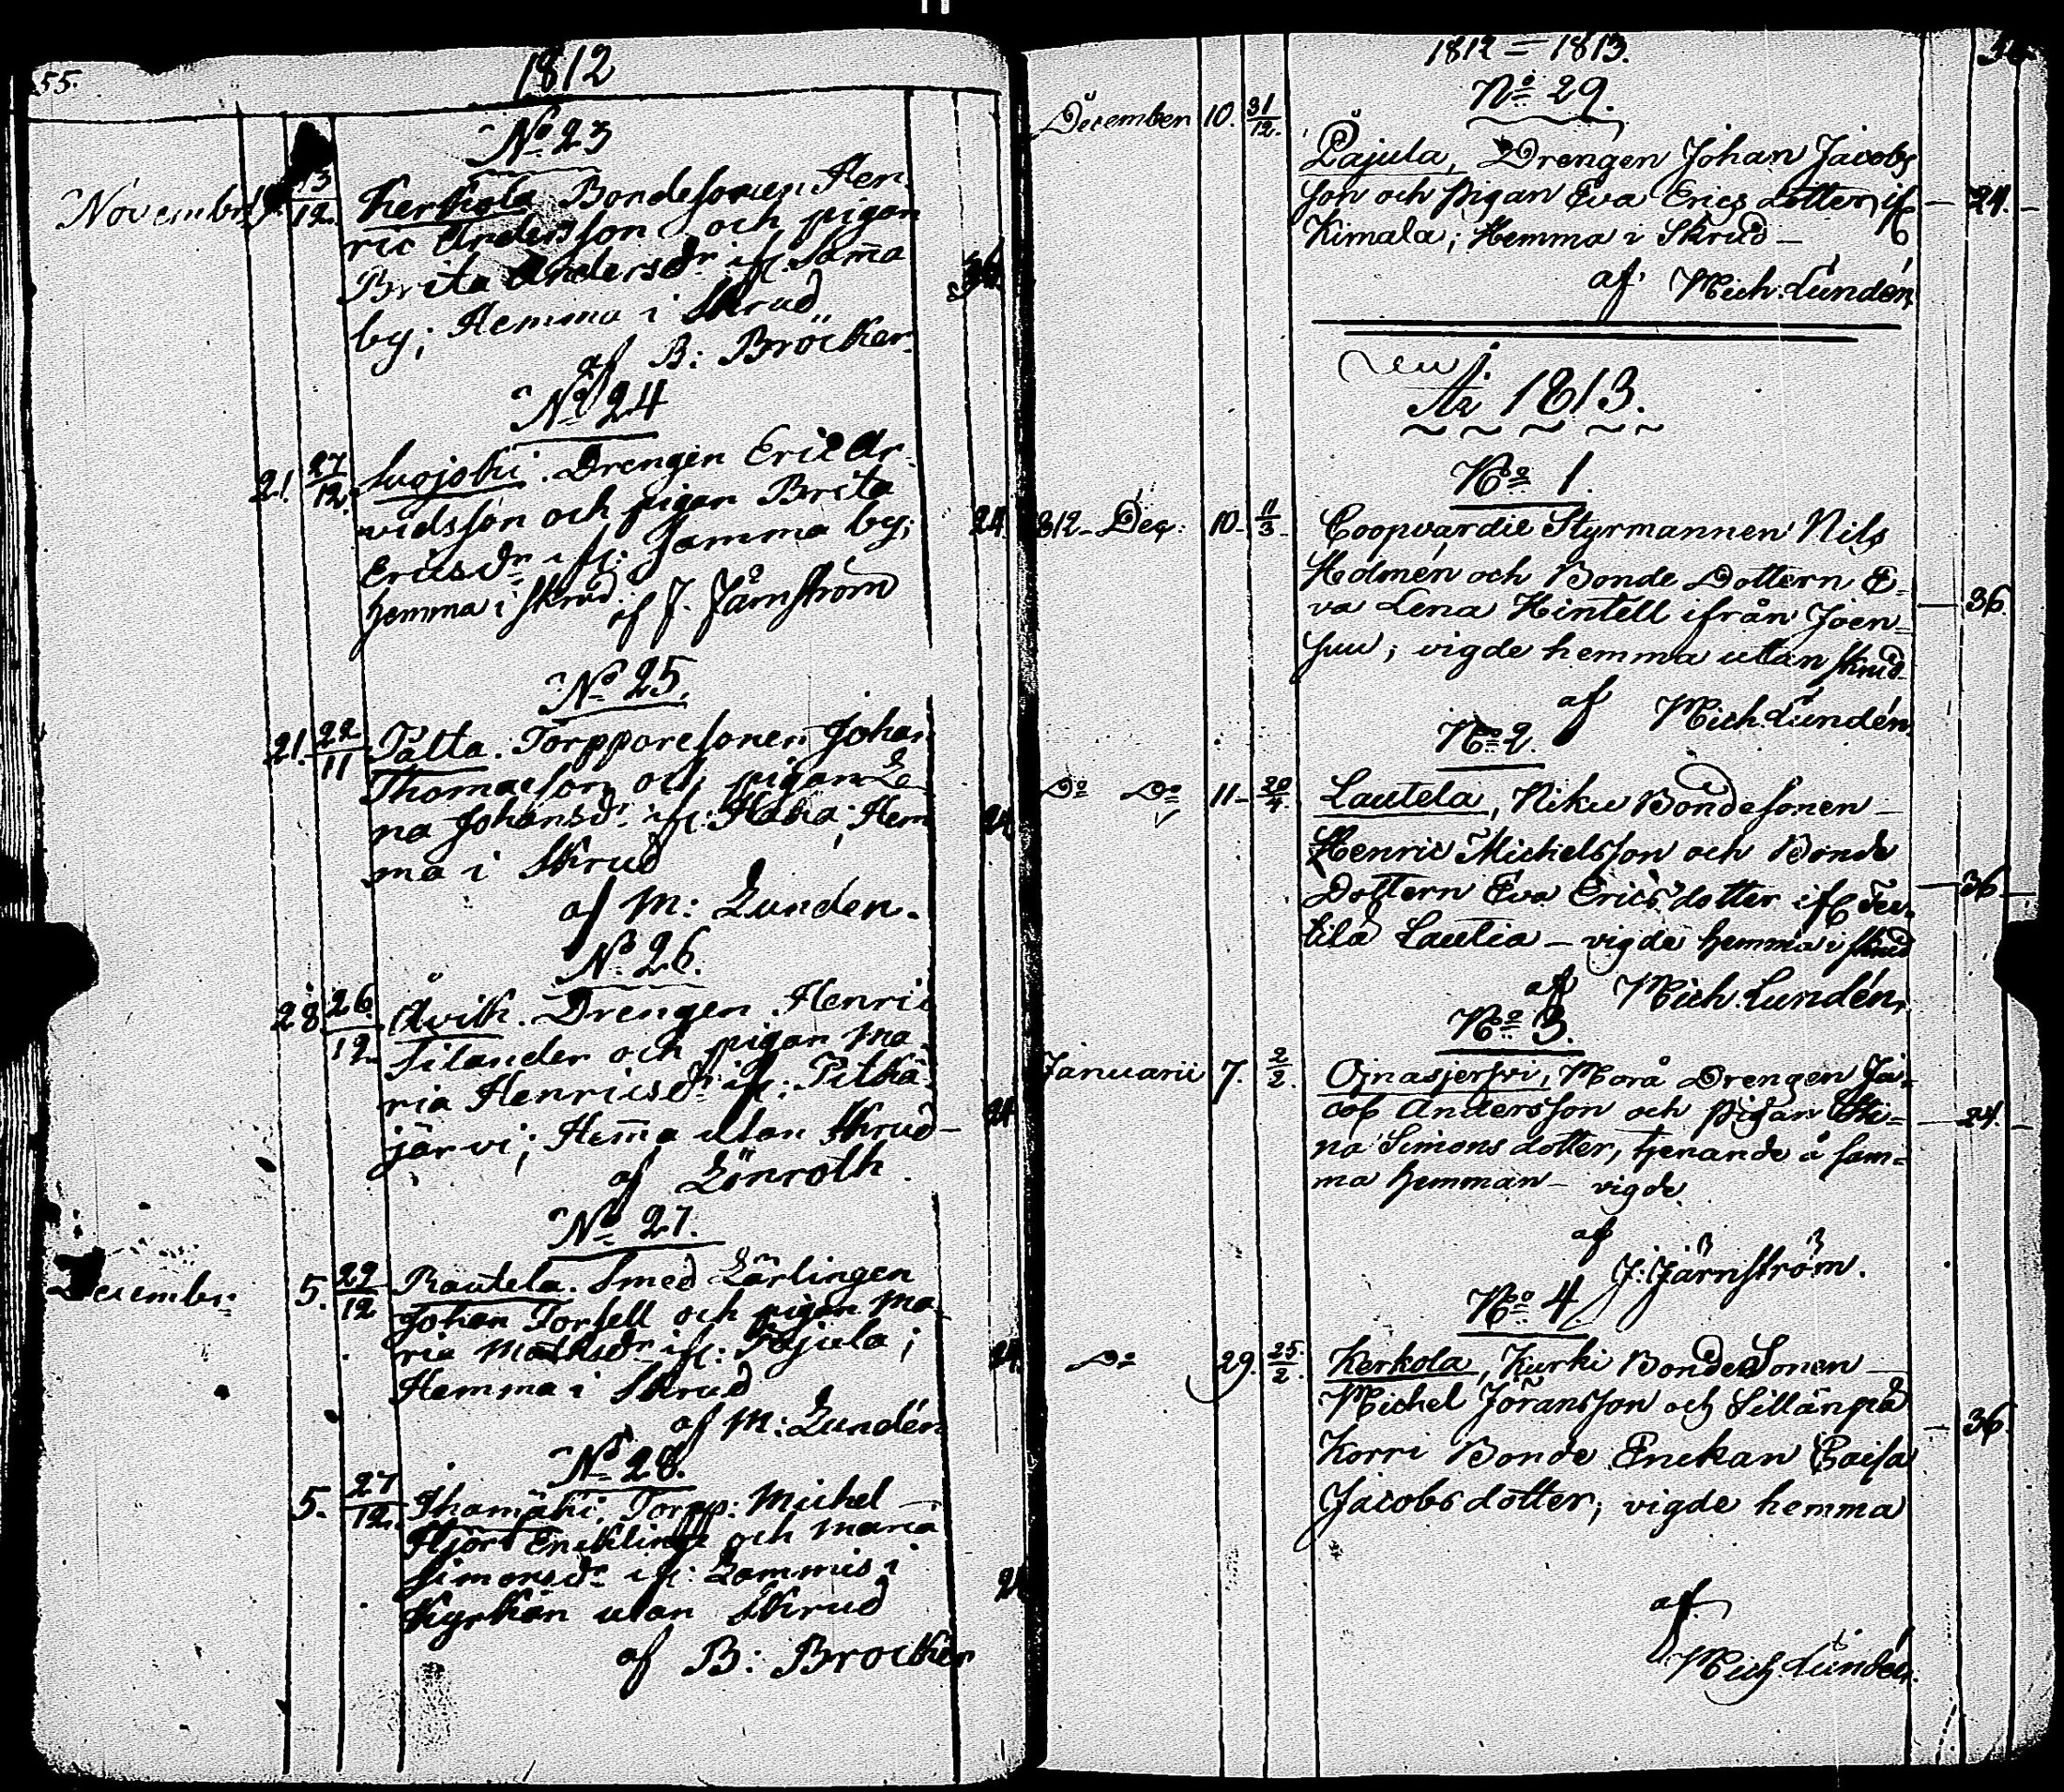 55.
1812
No 23
Novembr 13/12. Kerkola Bondesonen Hen
ric Andersson och pigan
Brita Andersdr ifr. Sam̄a 36.
by; Hemma i Skrud
af B: Bröcker
No 24
21. 27/12. Suojoki. Drengen Eric Ar
vidsson och pigan Brita
Ericsdr ifr: samma by; 24.
hemma i skrud.
af J. Järnström
No 25.
21. 22/11 Palta. Torpparesonen Johan
Thomasson och pigan Le
na Johansdr ifr: Haka; Hem 24
ma i Skrud
af M: Lunden.
No 26.
28 26/12 Qvik. Drengen Henric
Silander och pigan Ma
ria Henricsdr ifr: Pitkä
järvi; Hem̄a utan Skrud - 24
af Lönroth
No 27.
Decembr: 5. 29/12 Rautela. Smed Lärlingen
Johan Forsell och pigan Ma
ria Mathsdr ifr: Pajula; 24.
Hemma i Skrud
af M: Lundén
No 28.
5. 27/12. Ihamäki; Torpp: Michel
Hjort Encklinge och Maria
Simonsdr ifr: Lammis i 24
Kyrkan utan Skrud
af B: Bröcker
1812 = 1813.
No 29.
December 10. 31/12. Pajula, Drengen Johan Jacobs
son och pigan Eva Erics dotter, ifr - 24. -
Kimala; Hemma i Skrud -
af Mich. Lundén,
År 1813.
No 1.
812 - Dec: 10 - 11/3 - Coopvardie Styrmannen Nils
Holmén och Bonde Dottern E-
va Lena Hintell ifrån Joen- - 36.
suu; vigde hemma utan skrud
af Mich. Lundén.
No 2.
Do Do 11 - 20/4. Lautela, Niku Bondesonen -
Henric Michelsson och Bonde
Dottern Eva Erics dotter ifr - 36. -
tila Lautia - vigde hemma i skrud
af Mich. Lundén,
No 3.
Januarii 7. 2/2. Ojnasjerfvi, Morå Drengen Ja-
cob Andersson och pigan Sti- - 24. -
na Simons dotter, tjenande å sam-
ma hemman - vigde
af
J: Järnström.
No 4.
Do 29. 25/2. Kerkola, Kurki BondeSonen -
Michel Jöransson och Sillänpä
Korri Bonde Enckan Caisa - 36.
Jacobs dotter; vigde hemma
af
Mich. Lundén.